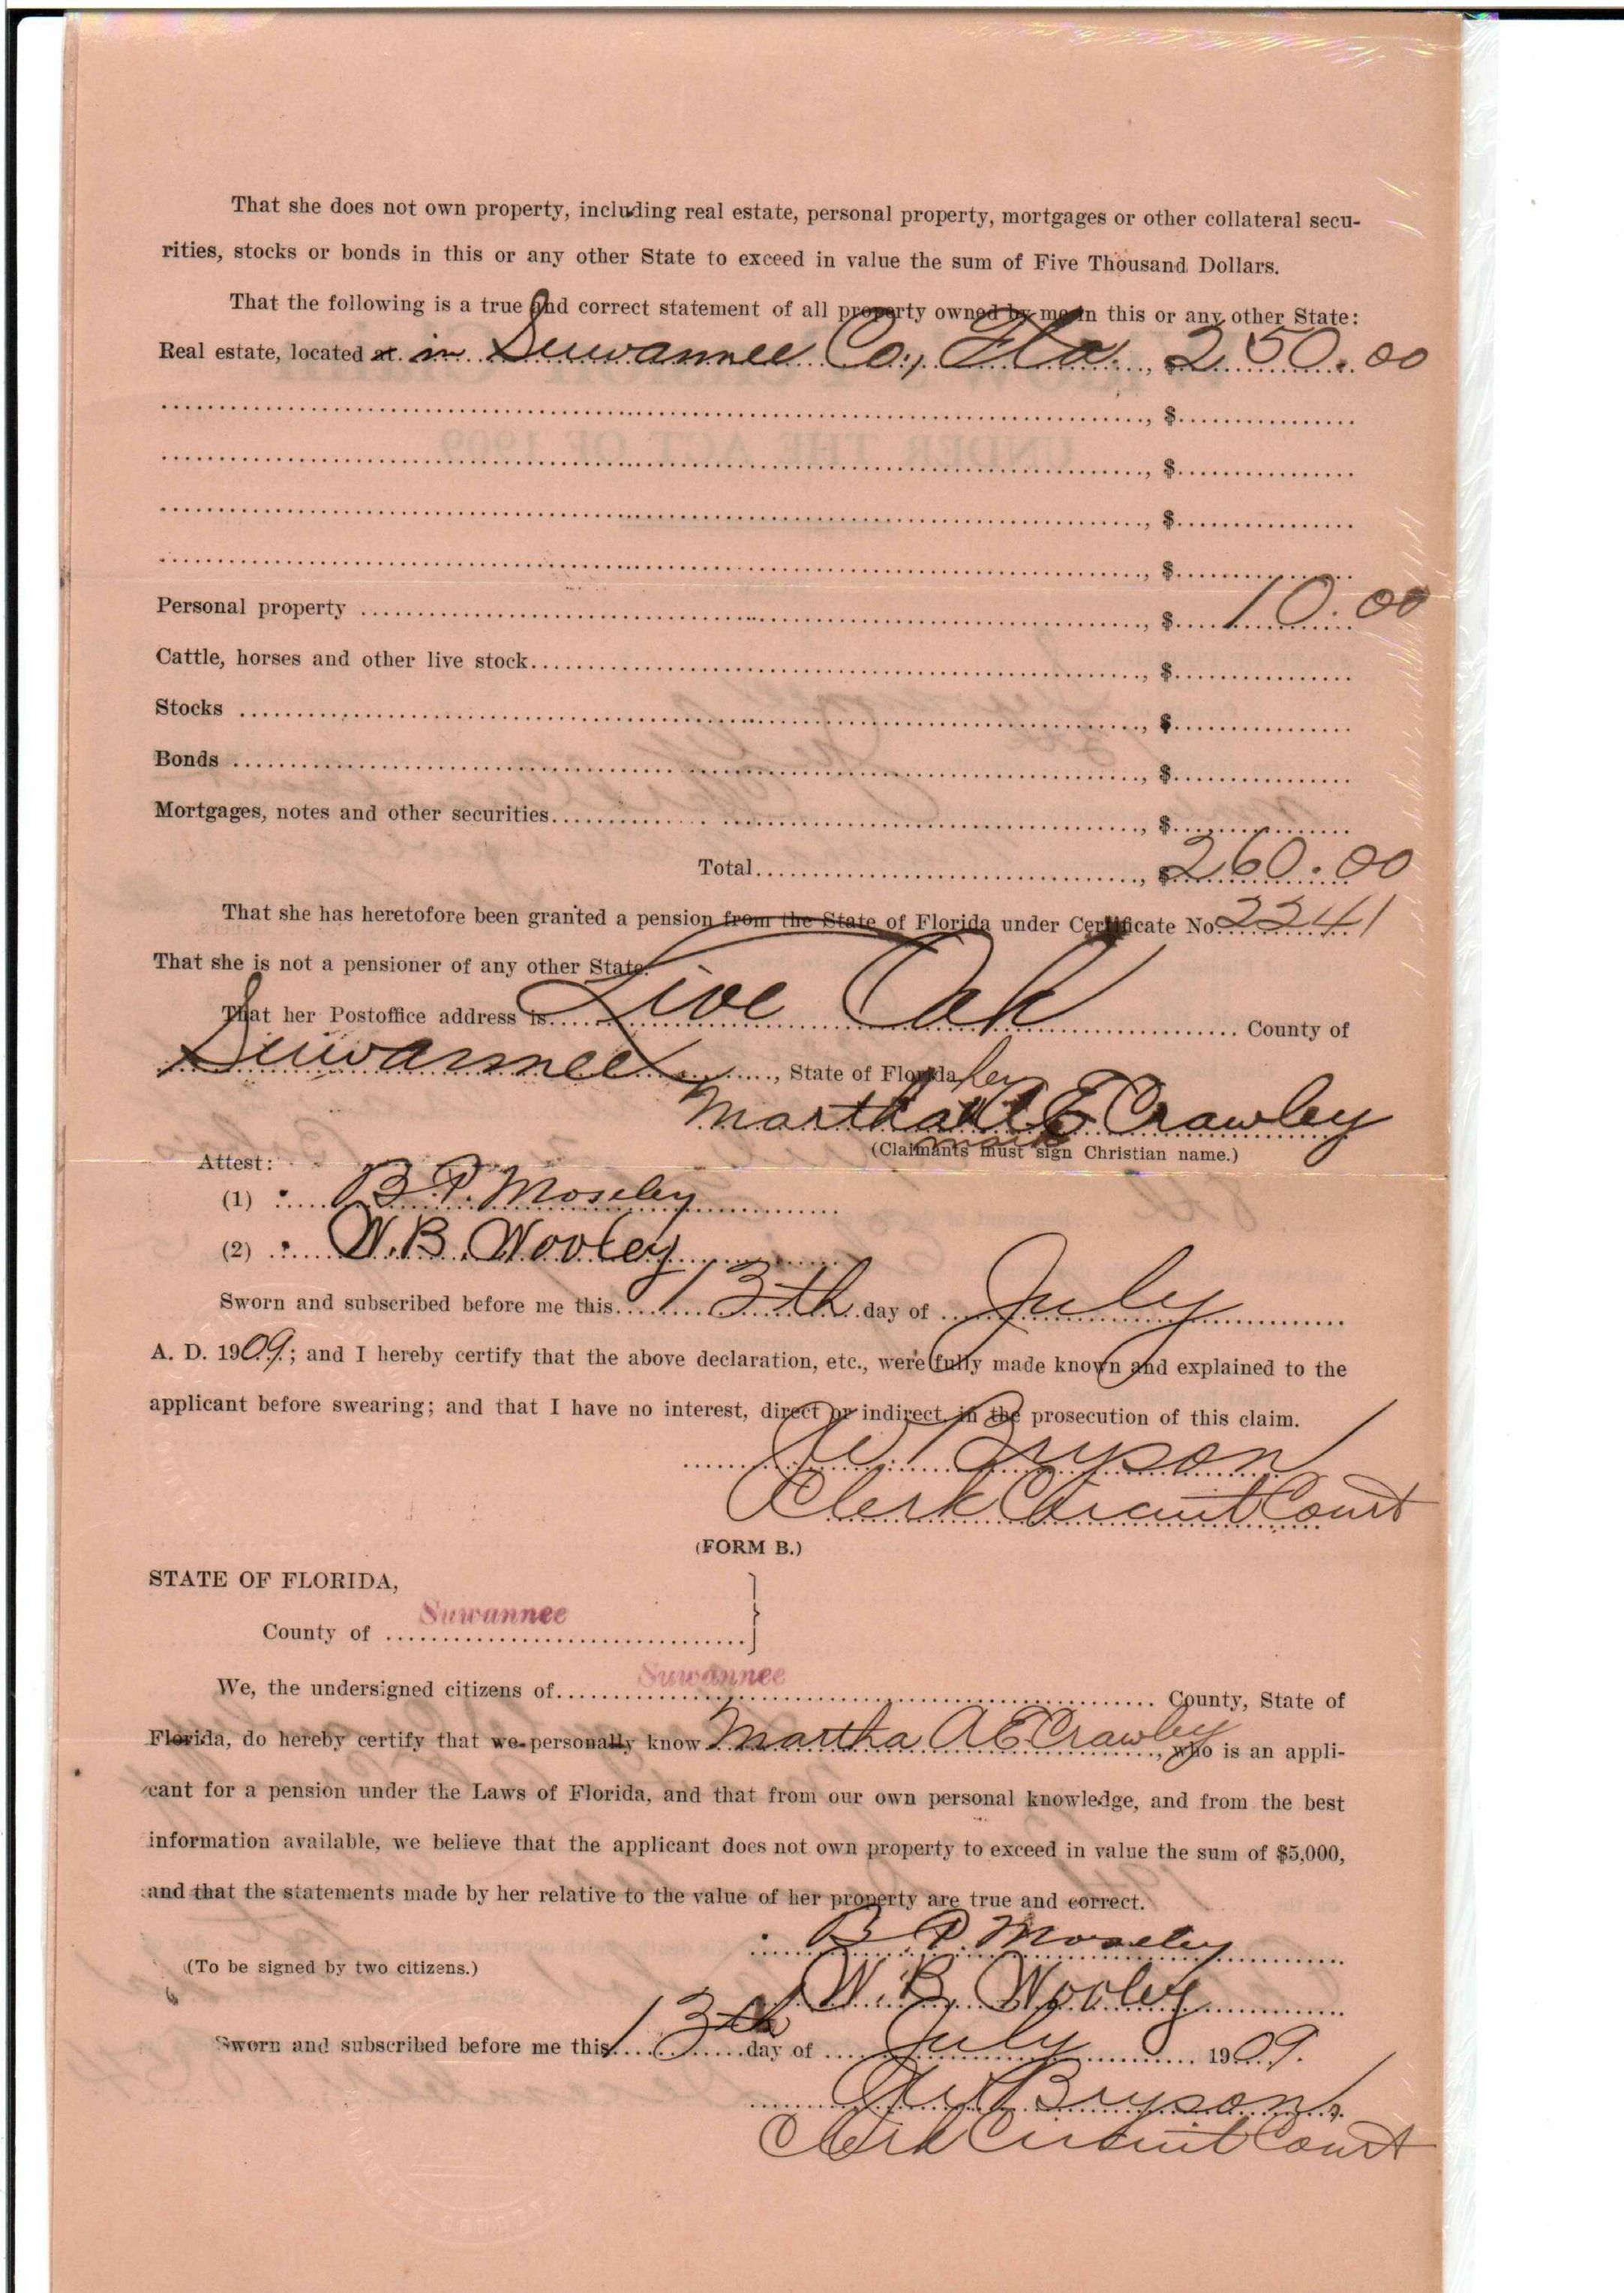 That she does not own property, including real estate, personal property, mortgages or other collateral secu-
rities, stocks or bonds in this or any other State to exceed in value the sum of Five Thousand Dollars.
That the following is a true and correct statement of all property owned by me in this or any other State:
Real estate, located at in Suwannee Co., Fla., $250.00
, $
, $
, $
, $
Personal property , $10.00
Cattle, horses and other live stock , $
Stocks , $
Bonds , $
Mortgages, notes and other securities , $
Total , $260.00
That she has heretofore been granted a pension from the State of Florida under Certificate No. 2241
That she is not a pensioner of any other State.
That her Postoffice address is Live Oak County of
Suwannee , State of Florida
her
Martha A E Crawley
mark
(Claimants must sign Christian name.)
Attest:
(1) B. P. Moseley
(2) W. B. Wooley
Sworn and subscribed before me this 13th day of July
A. D. 1909; and I hereby certify that the above declaration, etc., were fully made known and explained to the
applicant before swearing; and that I have no interest, direct or indirect, in the prosecution of this claim.
Bryson
Clerk Circuit Court
(FORM B.)
STATE OF FLORIDA,
County of Suwannee
We, the undersigned citizens of Suwannee County, State of
Florida, do hereby certify that we personally know Martha A E Crawley, who is an appli-
cant for a pension under the Laws of Florida, and that from our own personal knowledge, and from the best
information available, we believe that the applicant does not own property to exceed in value the sum of $5,000,
and that the statements made by her relative to the value of her property are true and correct.
B. P. Moseley
(To be signed by two citizens.)
W. B. Wooley
Sworn and subscribed before me this 13th day of July 1909.
Bryson,
Clerk Circuit Court